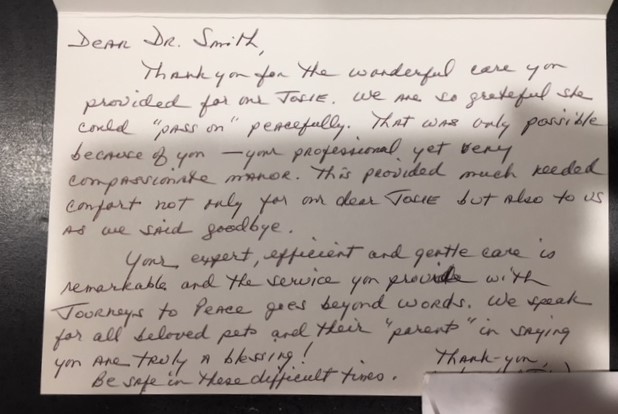 Dear Dr. Smith,
Thank you for the wonderful care you
provided for our Josie. We are so grateful she
could "pass on" peacefully. That was only possible
because of you – your professional yet very
compassionate manor. This provided much needed
comfort not only for our dear Josie but also to us
as we said goodbye.
Your expert, efficient and gentle care is
remarkable and the service you provide with
Journeys to Peace goes beyond words. We speak
for all beloved pets and their "parents" in saying
you are truly a blessing! Thank-you,
Be safe in these difficult times.